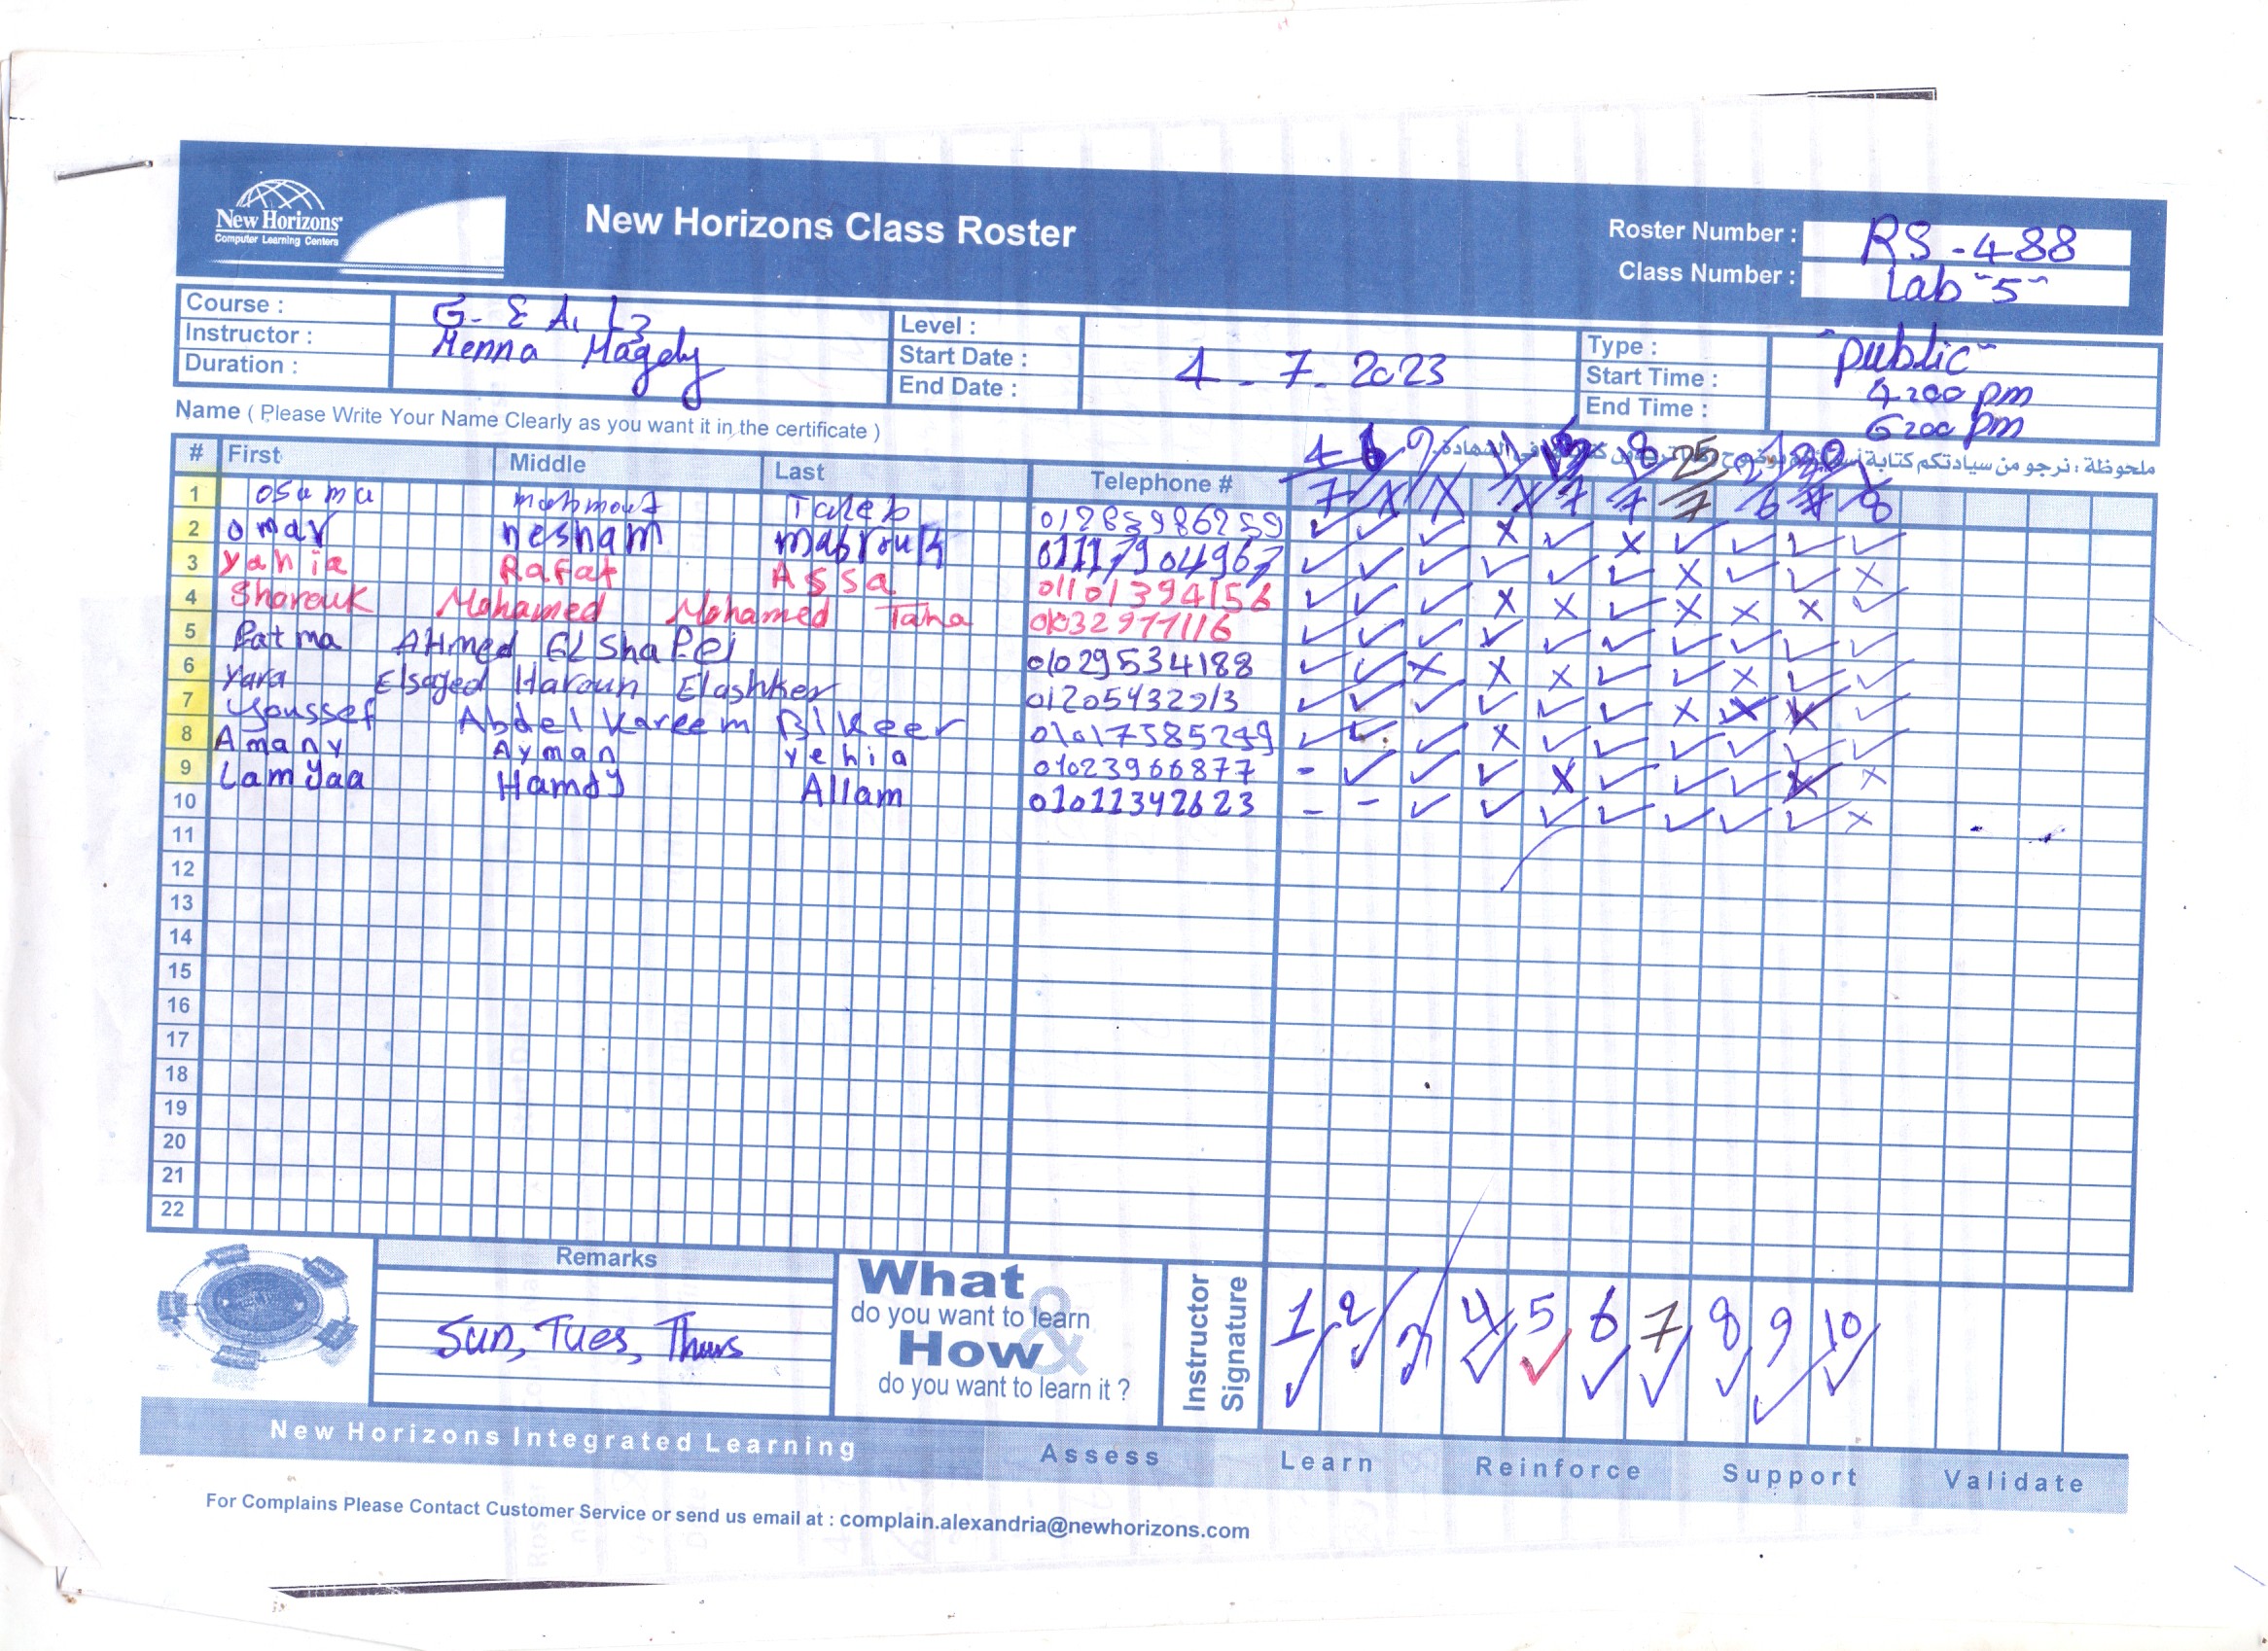 New Horizons
Computer Learning Centers
New Horizons Class Roster
Roster Number : RS - 488
Class Number : Lab "5"
Course : G. E A. L3
Instructor : Menna Magdy
Duration :
Level :
Start Date : 4 - 7 - 2023
End Date :
Type : "public"
Start Time : 4:00 pm
End Time : 6:00 pm
Name ( Please Write Your Name Clearly as you want it in the certificate )
ملحوظة : نرجو من سيادتكم كتابة
# First Middle Last Telephone #
1 osama mahmoud Taleb 01285986259
2 omar hesham mabrouk 01117904967
3 Yahia Rafat Assa 01101394156
4 Sharouk Mohamed Mohamed Taha 01032977116
5 Fatma AHmed ElShaFei 01029534188
6 Yara Elsayed Haroun Elashker 01205432913
7 Youssef Abdel Kareem 01017385299
8 Amany Ayman yehia 01023966877
9 Lamyaa Hamdy Allam 01011342623
10
11
12
13
14
15
16
17
18
19
20
21
22
Remarks
Sun, Tues, Thurs
What
do you want to learn
&
How
do you want to learn it ?
Instructor Signature
1 2 3 4 5 6 7 8 9 10
New Horizons Integrated Learning Assess Learn Reinforce Support Validate
For Complains Please Contact Customer Service or send us email at : complain.alexandria@newhorizons.com